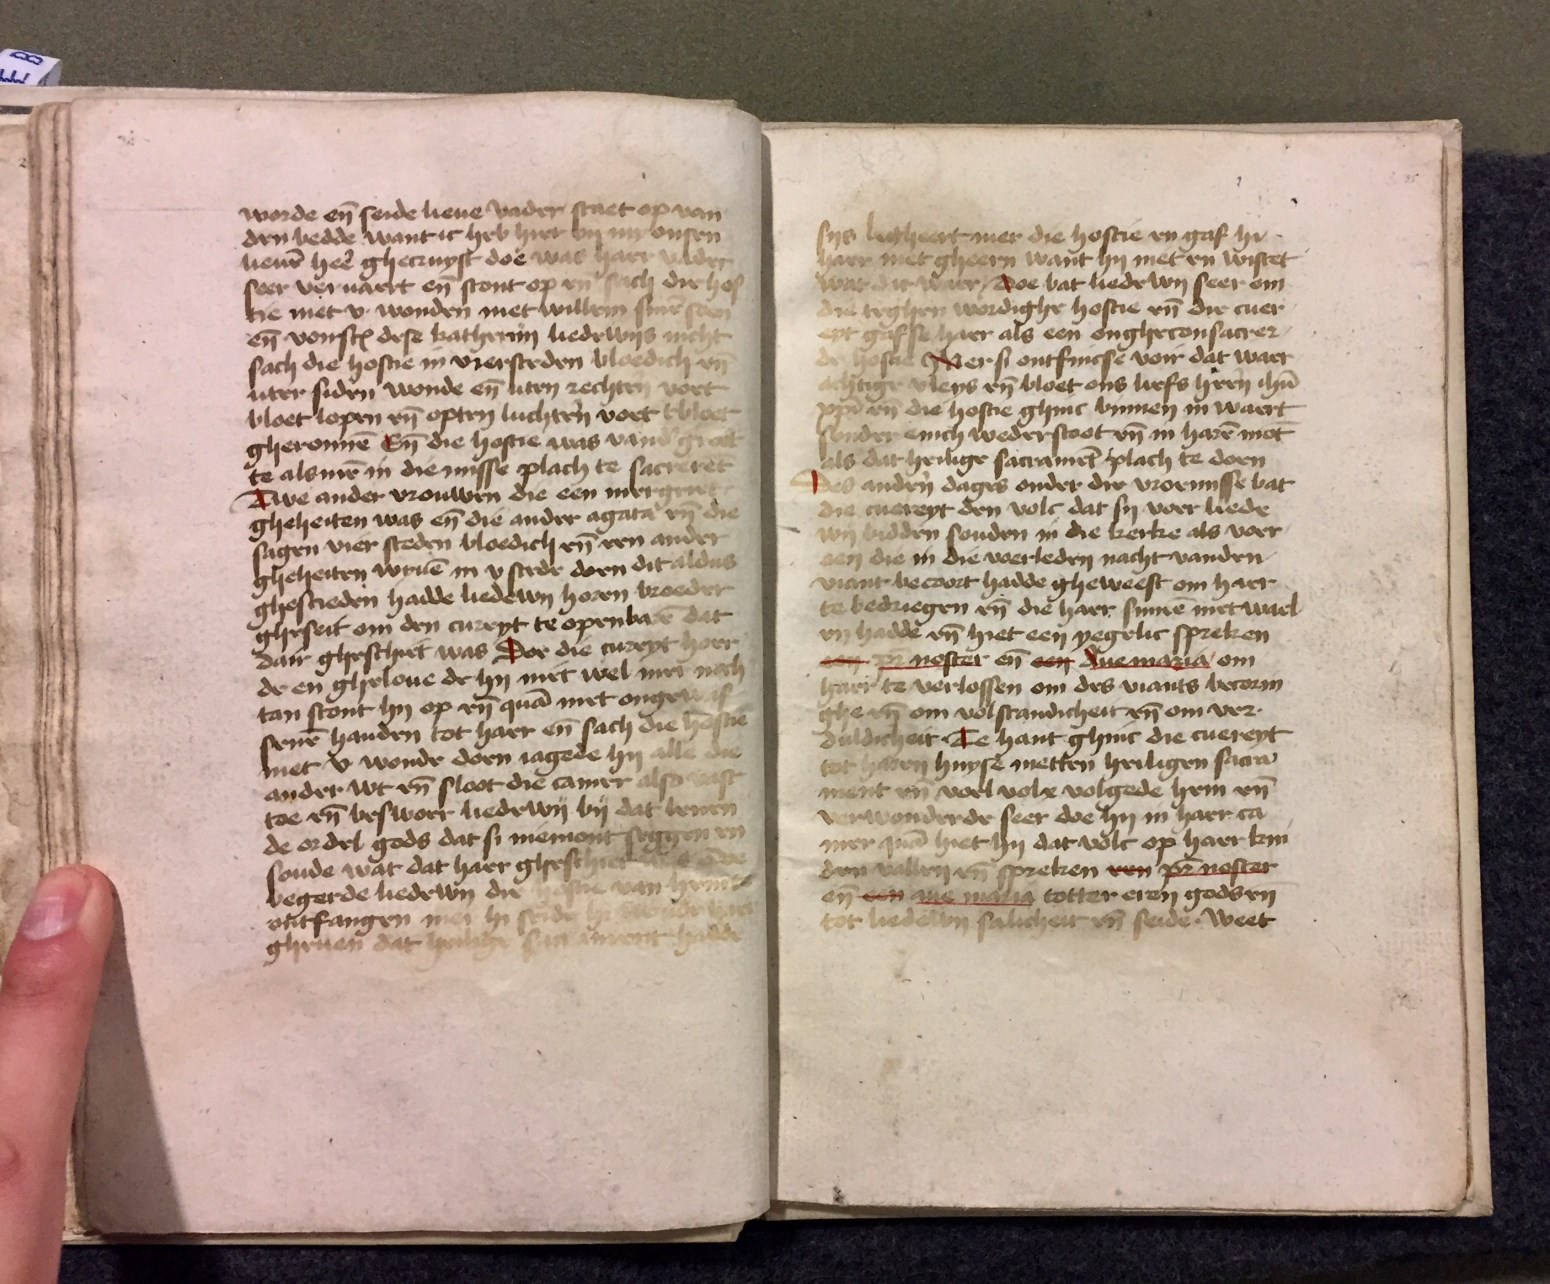 worde en̄ seide lieue vader staet op van
den bedde want ic heb hier bij mij onsen
lieuē heē ghecruyst doe was haer vader
seer veruaert en̄ stont op en̄ sach die hos
tie met v wonden met willem sinē soen
en̄ dese katherijn liedewijs nicht
sach die hostie in vier steden bloedich en̄
uter siden wonde en̄ uten rechten voet
bloet lopen en̄ opten luchtern voet tbloet
gheronnē En̄ die hostie was
te alsmē in die misse plach te sacreren
Twe ander vrouwen die een mergriet
gheheiten was en̄ die ander agata en̄ die
sagen vier steden bloedich en̄ een ander
gheheiten in v stede doen dit aldus
ghescieden hadde liedewij horen broeder
gheseit om den cureyt te openbarē dat
dair ghesciet was Doe die cureyt hoer
de en gheloue de hij niet wel mer noch
tan stont hij op en̄ quā met ongewas
senē handen tot haer en̄ sach die hostie
met v wonde doen iagede hij alle die
ander wt en̄ sloot die camer also vast
toe en̄ beswoer liedewij bij dat leuen
de ordel gods dat si niemont seggen en
soude wat dat haer gheschiet was Doe
begerde liedewij die hostie van hem te
ontfangen mer hi seide hi woude haer
gheuen dat heilige sacrament hadde
sijs begheert mer die hostie en gaf hi
haer niet gheern want hij niet en wistet
wat dit waer Doe bat liedewij seer om
die teghen wordighe hostie en̄ die cuer
eyt gafse haer als een onghеconsacrer
de hostie Mer si ontfincse voir dat waer
achtige vleys en̄ bloet ons liefs heren ihū
xpī en̄ die hostie ghinc binnen in waert
sonder enich wederstoot en̄ in harē mōt
als dat heilige sacramēt plach te doen
Des andern dages onder die vroemisse bat
die cuereyt den volc dat sij voer liede
wij bidden souden in die kerke als voer
een die in die voerleden nacht vanden
viant becoort hadde gheweest om haer
te bedriegen en̄ die haer sinne niet wael
en hadde en̄ hiet een yegelic spreken
een pr̄ noster en̄ een Aue maria om
haer te verlossen om des viants becorin
ghe en̄ om volstandicheit en̄ om ver
duldicheit Te hant ghinc die cuereyt
tot haren huyse metten heiligen sacra
ment en̄ voel volx volgede hem en̄
verwonderde seer doe hij in haer ca
mer quā hiet hij dat volc op haer knie
den vallen en̄ spreken een pr̄ noster
en̄ een aue maria totter eren gods en̄
tot liedewij salicheit en̄ seide weet